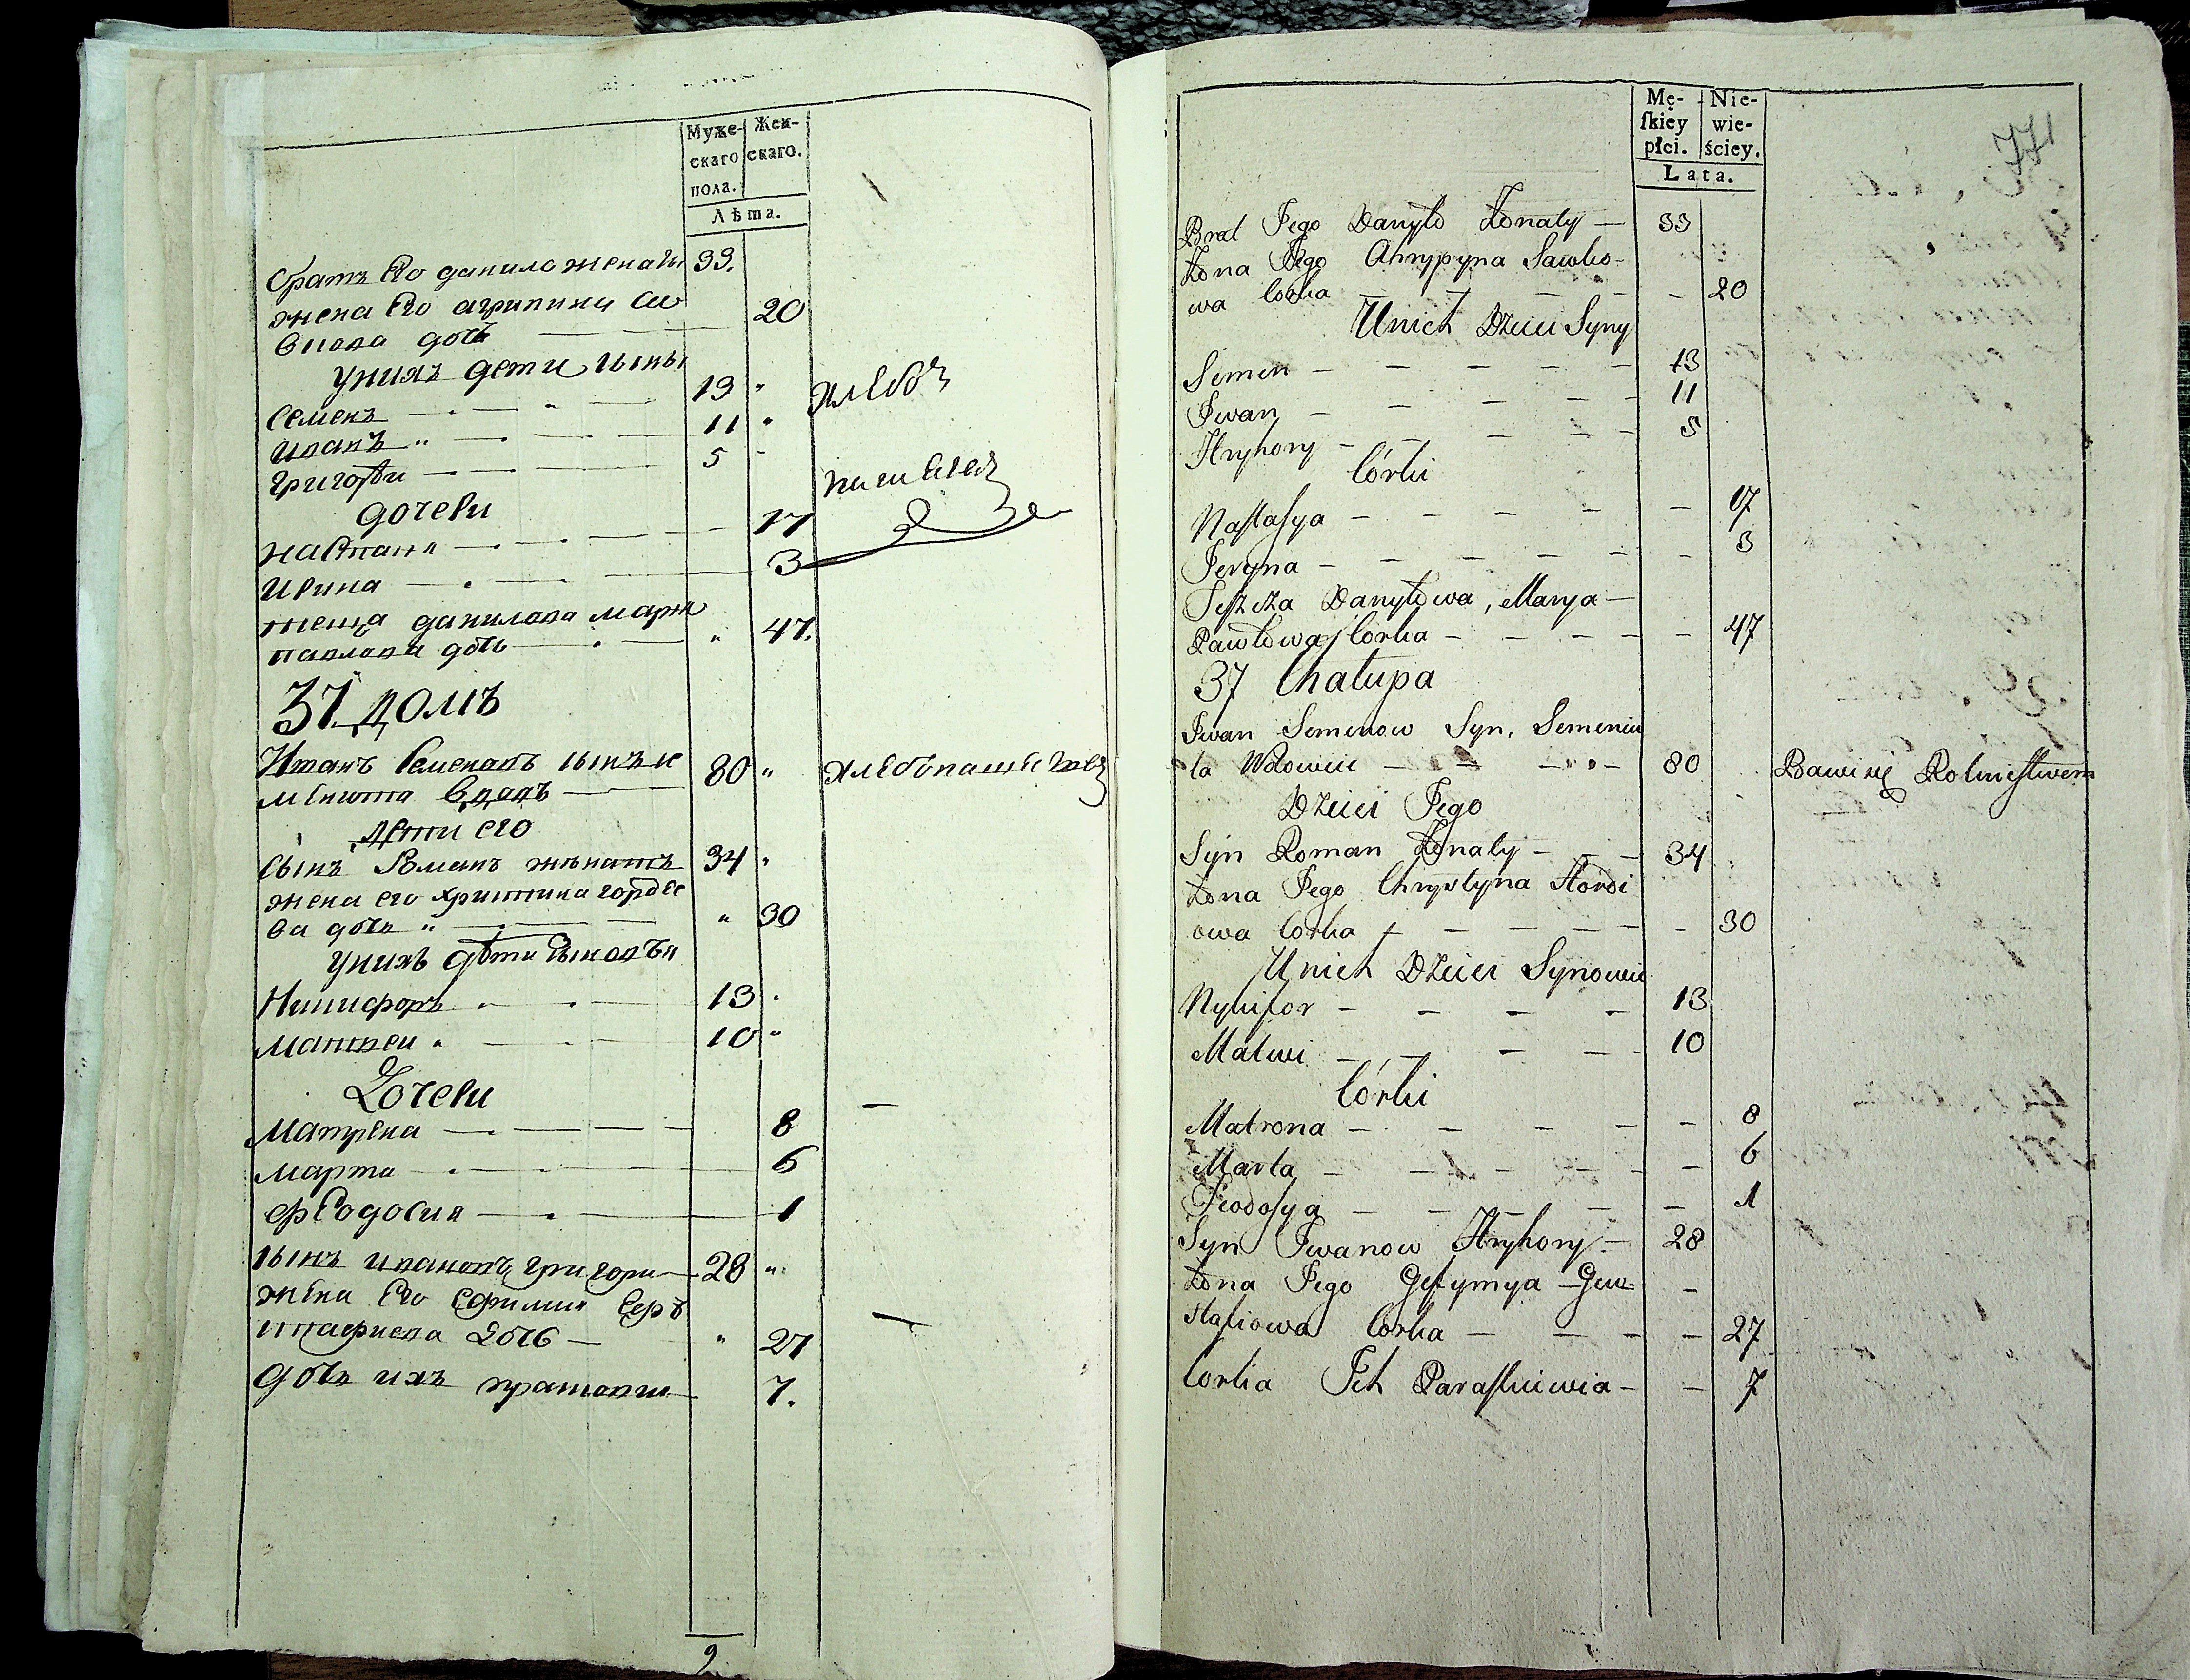 Муже- Жен-
скаго скаго.
пола.
Лѣта.
братъ Его данило женаты 33.
жена Его агрипина са
вкова дочь 20
у нихъ дети сыны
Семенъ 13
иванъ 11
григорѣи 5
дочери
настася 17
ирина 3
теща данилова маря
павлова дочь 47.
хлебо
пашецъ
37. домъ
Иванъ Семеновъ сынъ се
менюта вдовъ 80 хлебопашецъ
дети его
сынъ Романъ женатъ 34
жена его христина горде
ва дочь 30
у нихъ дѣти сыновья
Никифоръ 13
матвеи 10
Дочери
матрена 8
марта 6
феодосия 1
сынъ ивановъ григори 28
жена Его Ефимия Евъ
стафиева дочь 27
дочь ихъ 7.
9
Mę- Nie-
skiey wie-
płci. ściey.
Lata.
771
Brat Jego Danyło Żonaty 33
Żona Jego Ahrypyna Sawko-
wa Corka 20
U nich Dzieci Syny
Semen 13
Jwan 11
Hryhory 5
Córki
Nastasya 17
Jeryna 3
Teszcza Danyłowa, Marya
Pawłowa Corka 47
37 Chałupa
Jwan Semenow Syn, Semeniu
ta Wdowiec 80 Bawi się Rolnictwem
Dzieci Jego
Syn Roman Żonaty 34
Żona Jego Chrystyna Hordi
owa Corka 30
U nich Dzieci Synowie
Nykifor 13
Matwi 10
Córki
Matrona 8
Marta 6
Feodosya 1
Syn Jwanow Hryhory 28
Żona Jego Jefymya Jew-
stafiowa Corka 27
Corka Jch Paraskiewia 7